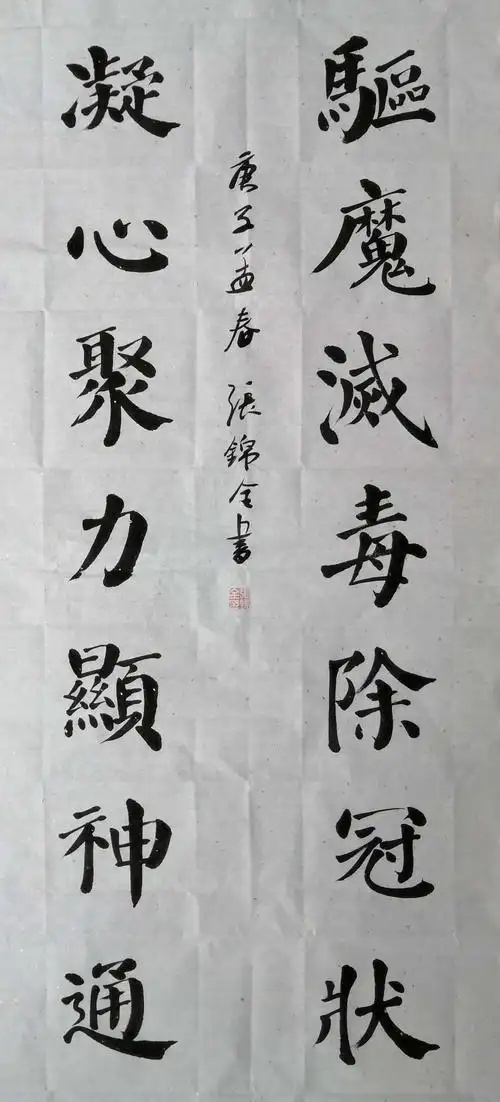 驅魔滅毒除冠狀
凝心聚力顯神通
庚子孟春 張錦全書